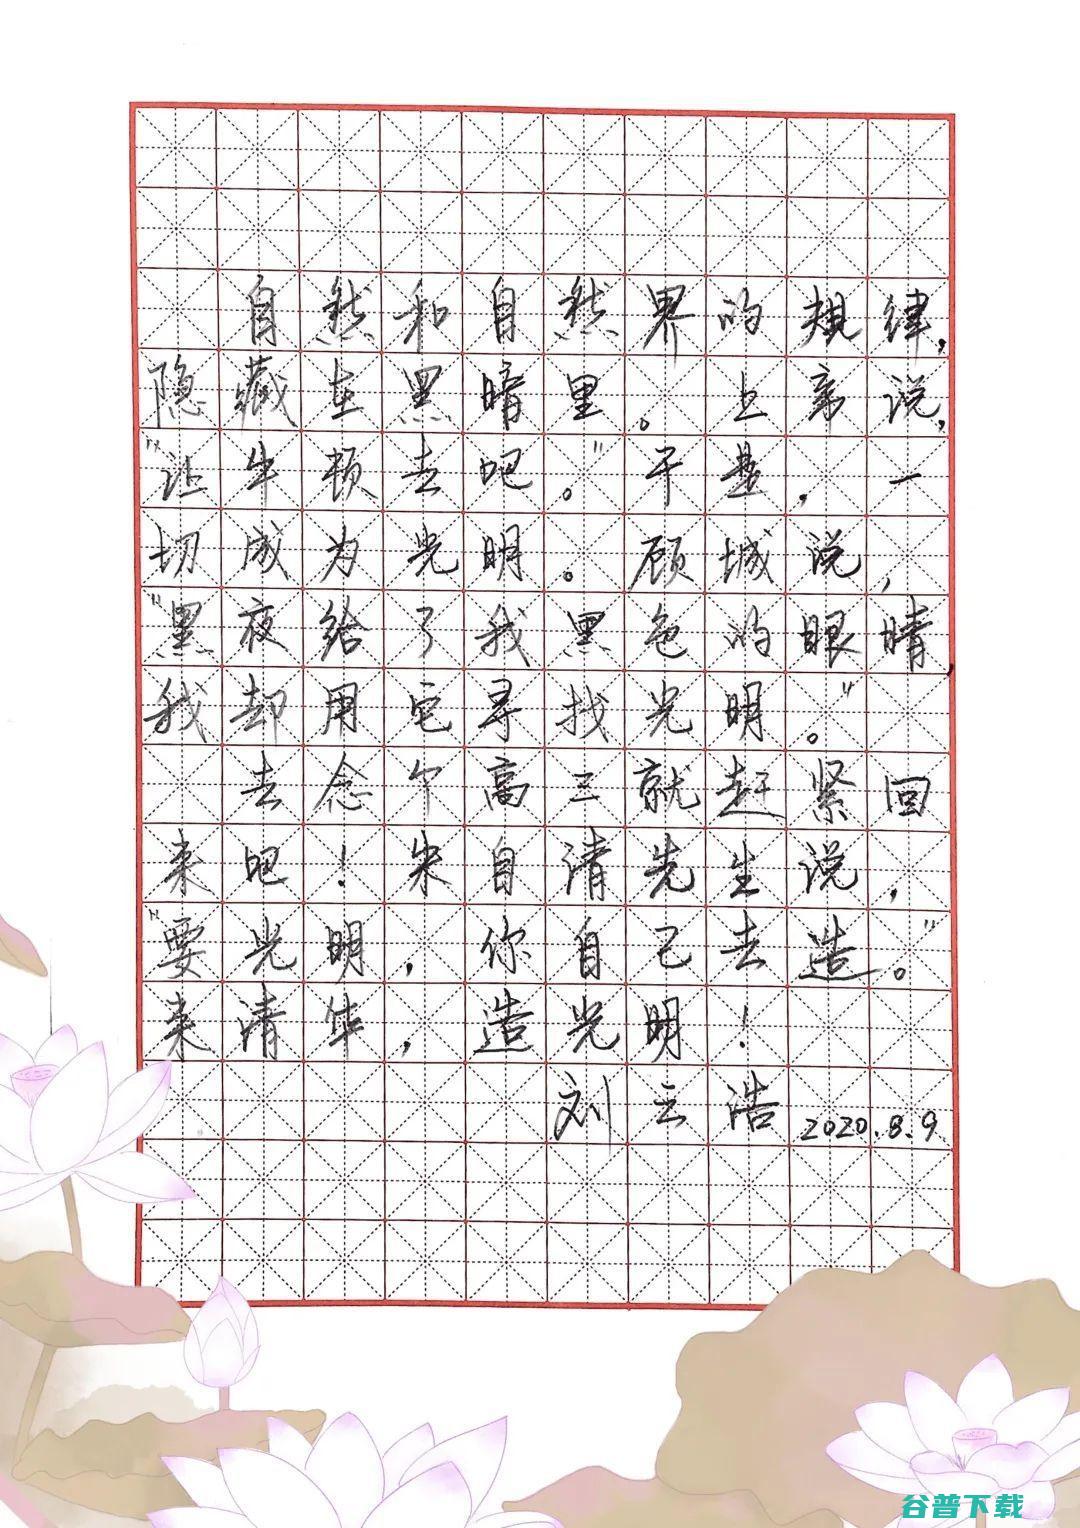 自然和自然界的规律，
隐藏在黑暗里。上帝说，
“让牛顿去吧。”于是，一
切成为光明。顾城说，
“黑夜给了我黑色的眼睛，
我却用它寻找光明。”
去念个高三就赶紧回
来吧！朱自清先生说，
“要光明，你自己去造。”
来清华，造光明！
刘云浩 2020.8.9
谷普下载